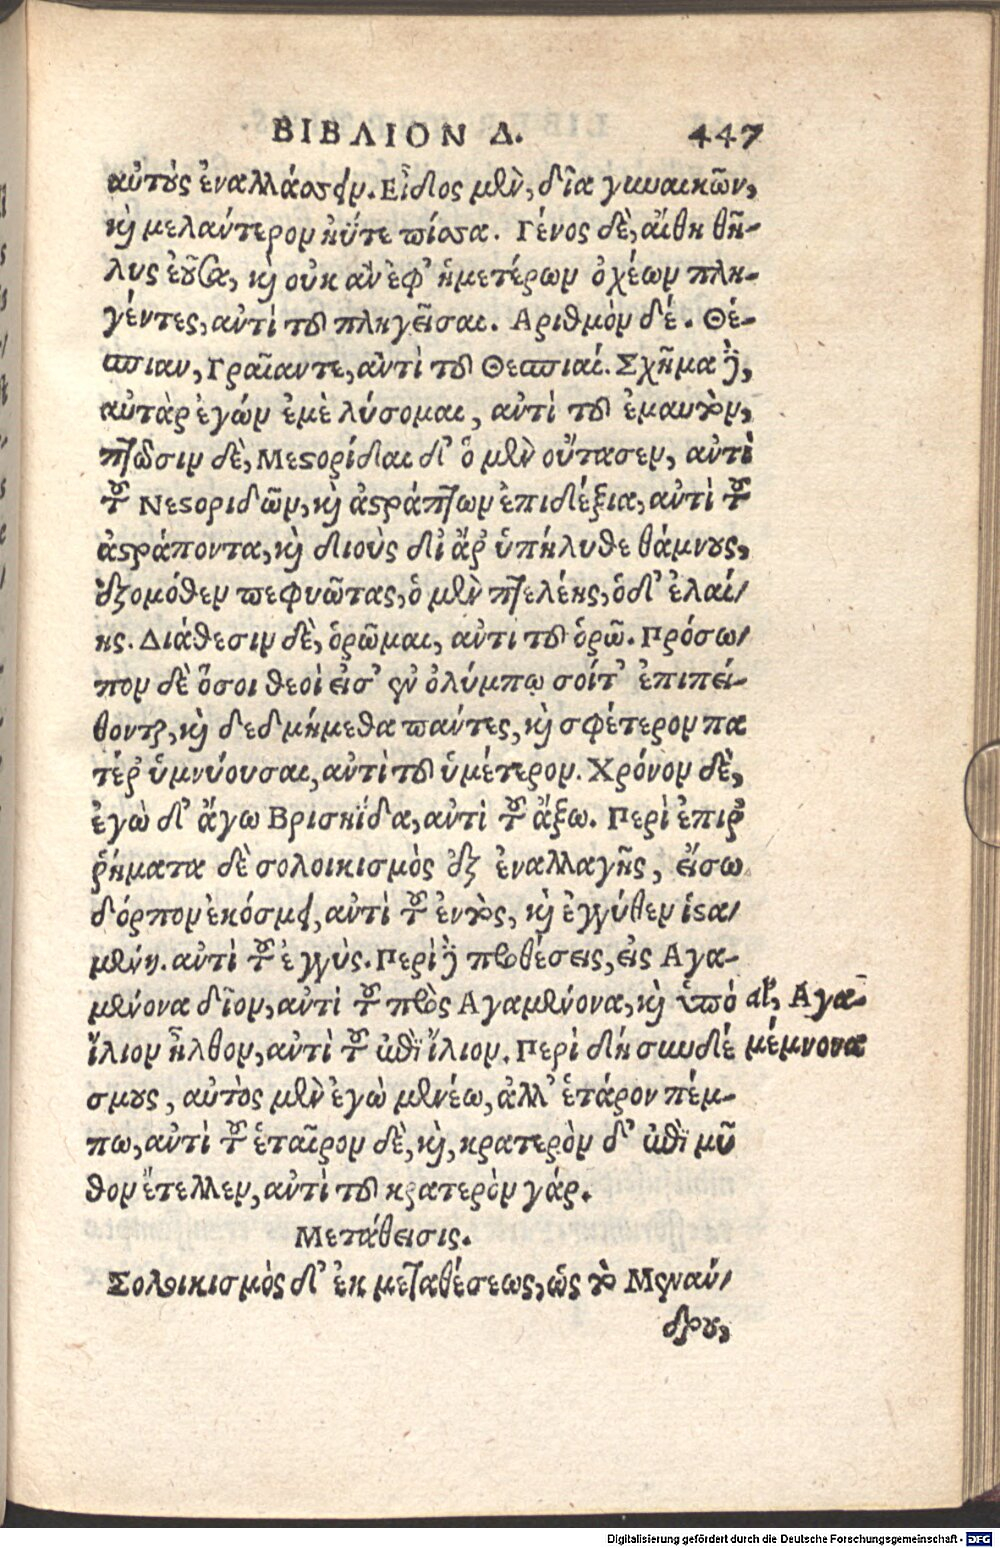 ΒΙΒΛΙΟΝ Δ. 447
αὐτοὺς ἐναλλάσσειν. Εἶδος μὲν, δῖα γυναικῶν,
καὶ μελάντερον ἠΰτε πίσσα. Γένος δὲ, αἴθη θῆ-
λυς ἐοῦσα, καὶ οὐκ ἂν ἐφ' ἡμετέρων ὀχέων πλη-
γέντες, αὐτὶ τοῦ πληγεῖσαι. Αριθμὸν δέ. Θέ-
σπιαν, Γραῖαντε, αντὶ τοῦ Θεσπιαί. Σχῆμα δὲ,
αὐτὰρ ἐγών ἐμὲ λύσομαι, αὐτὶ τοῦ ἐμαυτὸν,
πτῶσιν δὲ, Μεστορίδαι δ' ὁ μὲν οὔτασεν, αὐτὶ
τοῦ Νεστοριδῶν, καὶ ἀστράπτων ἐπιδέξια, αὐτὶ τοῦ
ἀστράποντα, καὶ διοὺς δ' ἄρ ὑπήλυθε θάμνους,
ἐξομόθεν πεφυῶτας, ὁ μὲν πτελέης, ὁδ' ἐλαί/
ης. Διάθεσιν δὲ, ὁρῶμαι, αὐτι τοῦ ὁρῶ. Πρόσω/
πον δὲ ὅσοι θεοὶ εἰσ' ἐν ὀλύμπῳ σοίτ' ἐπιπεί-
θονται, καὶ δεδμήμεθα παντες, καὶ σφέτερον πα
τέρ ὑμνύουσαι, αὐτὶ τοῦ ὑμέτερον. Χρόνον δὲ,
ἐγὼ δ' ἄγω Βρισηΐδα, αὐτὶ τοῦ ἄξω. Περὶ ἐπιρ
ῥήματα δὲ σολοικισμὸς ἐξ ἐναλλαγῆς, εἴσω
δόρπον ἐκόσμει, αὐτὶ τοῦ ἐντὸς, καὶ ἐγγύθεν ἱστα/
μένη. αὐτὶ τοῦ ἐγγὺς. Περὶ δὲ προθέσεις, εἰς Αγα-
μέμνονα δῖον, αὐτὶ τοῦ πρὸς Αγαμέμνονα, καὶ ὑπὸ
ἴλιον ἦλθον, αὐτὶ τοῦ ἐπὶ ἴλιον. Περὶ δὴ συνδέ
σμους, αὐτὸς μὲν ἐγὼ μενέω, ἀλλ' ἑτάρον πέμ-
πω, αὐτὶ τοῦ ἑταῖρον δὲ, καὶ, κρατερὸν δ' ἐπὶ μῦ
θον ἔτελλεν, αὐτὶ τοῦ κρατερὸν γάρ.
Μετάθεισις.
Σολοικισμὸς δ' ἐκ μεταθέσεως, ὡς τὸ Μενάν/
δρου,
al', Αγα-
μέμνονα
Digitalisierung gefördert durch die Deutsche Forschungsgemeinschaft - DFG